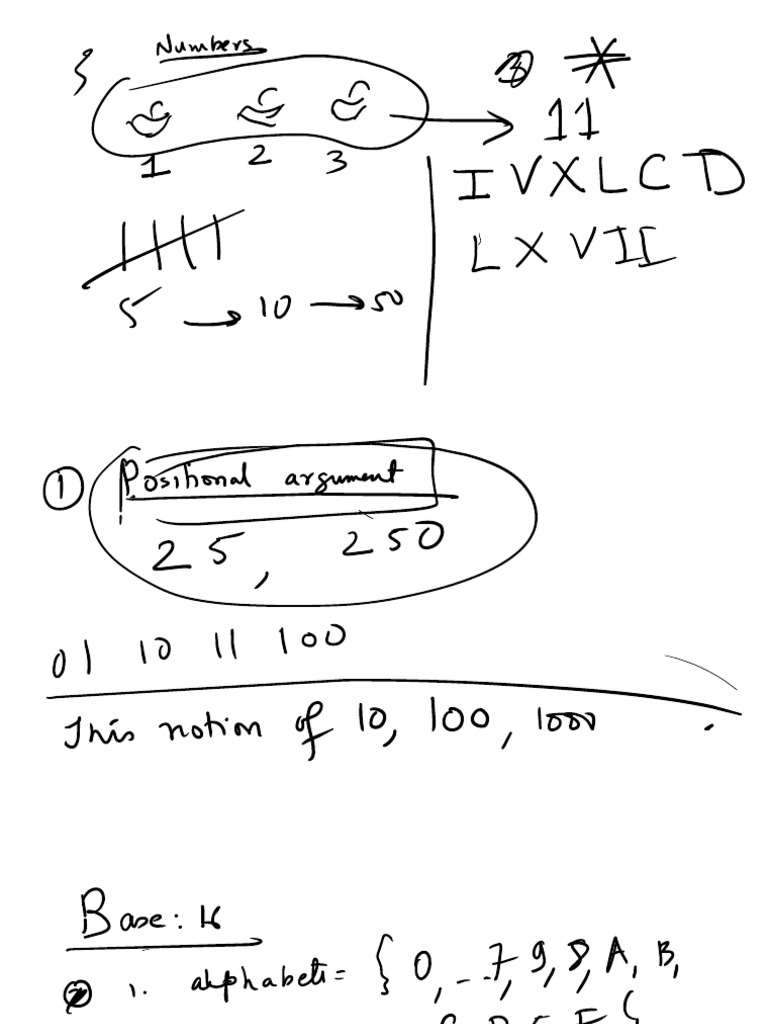 Numbers
1 2 3
11
I V X L C D
L X V II
5 → 10 → 50
① Positional argument
25, 250
01 10 11 100
This notion of 10, 100, 1000
Base: 16
1. alphabets = { 0, ..7, 9, 8, A, B,